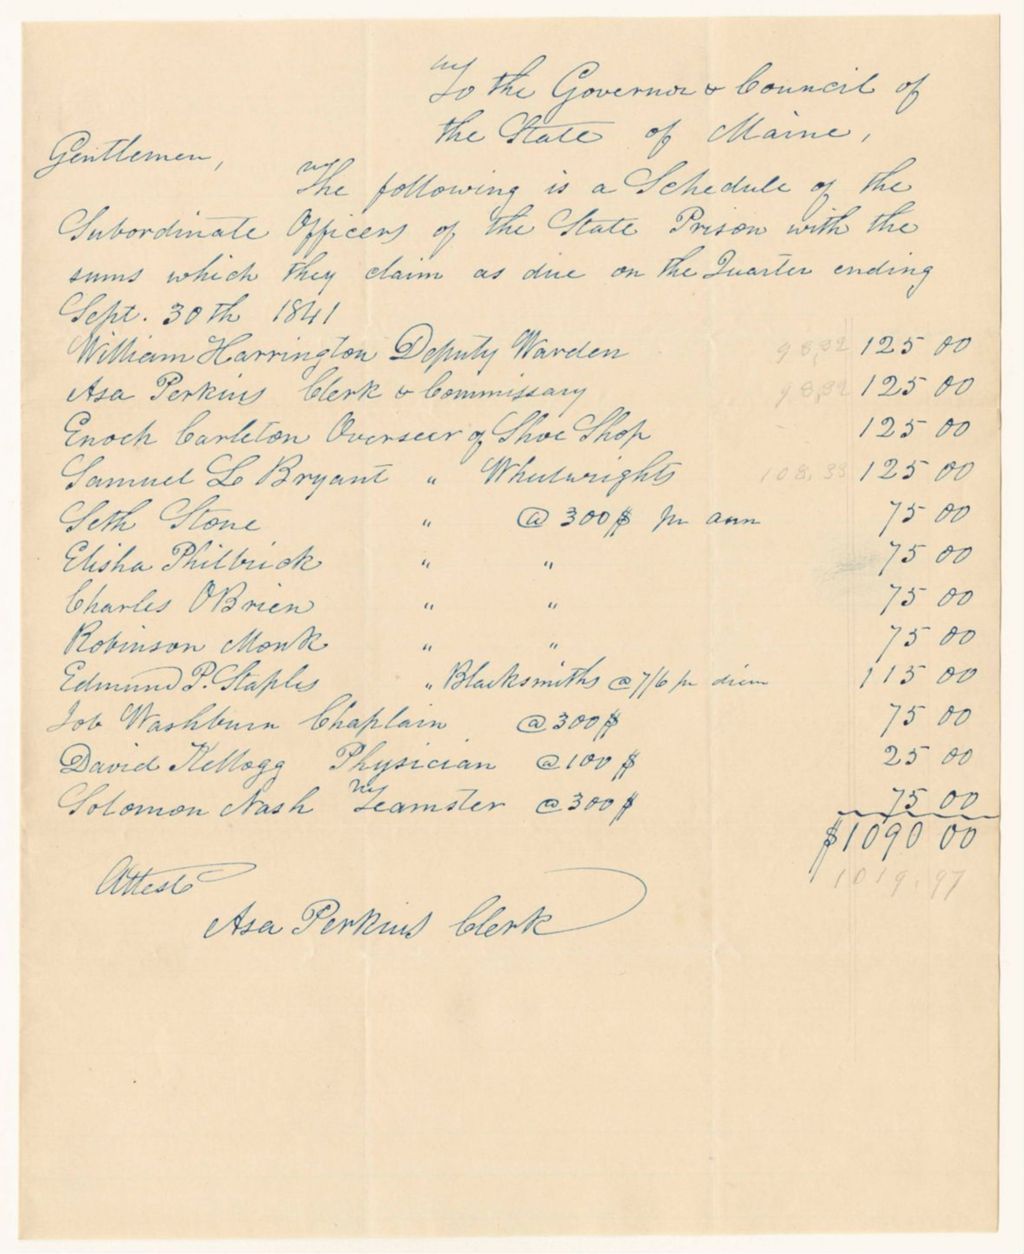 To the Governor & Council of
the State of Maine,
Gentlemen,
The following is a Schedule of the
Subordinate Officers of the State Prison with the
sums which they claim as due on the Quarter ending
Sept. 30th 1841
William Harrington Deputy Warden 98,32 125 00
Asa Perkins Clerk & Commissary 98,32 125 00
Enoch Carleton Overseer of Shoe Shop 125 00
Samuel L Bryant " Wheelwrights 108,33 125 00
Seth Stone " @ 300$ pr ann 75 00
Elisha Philbrick " " 75 00
Charles OBrien " " 75 00
Robinson Monk " " 75 00
Edmund P. Staples " Blacksmiths @ 7/6 pr diem 115 00
Job Washburn Chaplain @ 300$ 75 00
David Kellogg Physician @ 100 $ 25 00
Solomon Nash Teamster @ 300 $ 75 00
$1090 00
1019.97
Attest
Asa Perkins Clerk